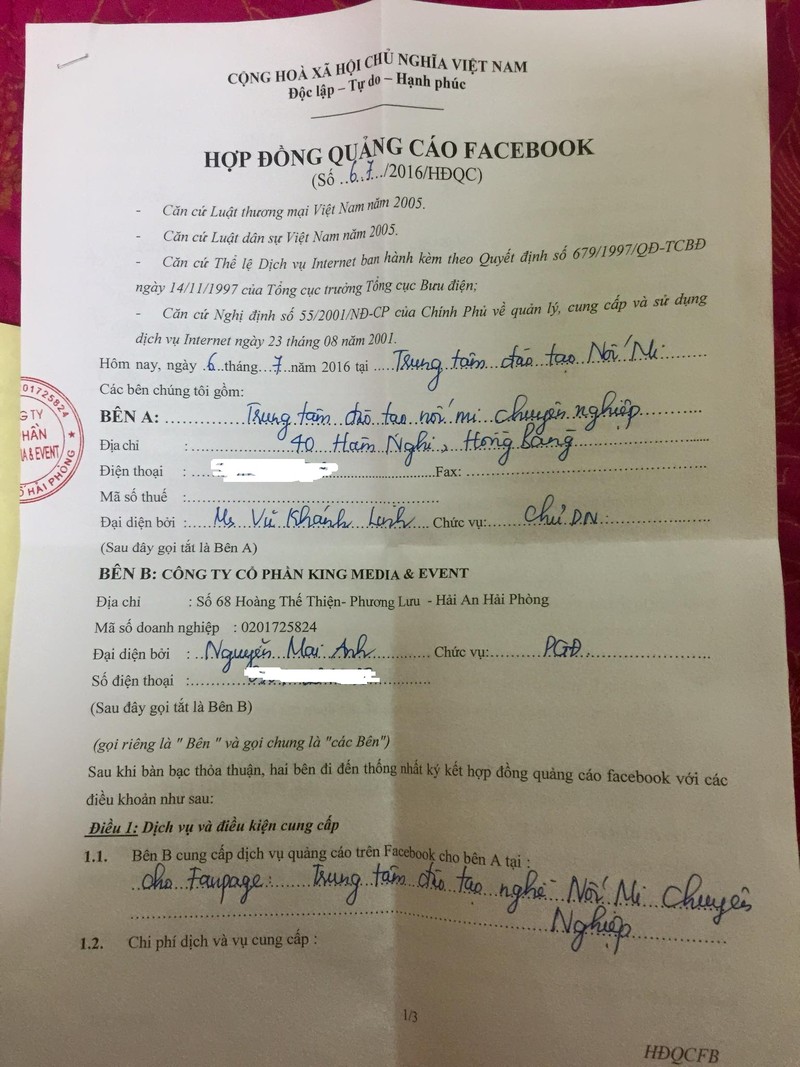 CỘNG HOÀ XÃ HỘI CHỦ NGHĨA VIỆT NAM
Độc lập – Tự do – Hạnh phúc
HỢP ĐỒNG QUẢNG CÁO FACEBOOK
(Số ..6.7../2016/HĐQC)
- Căn cứ Luật thương mại Việt Nam năm 2005.
- Căn cứ Luật dân sự Việt Nam năm 2005.
- Căn cứ Thể lệ Dịch vụ Internet ban hành kèm theo Quyết định số 679/1997/QĐ-TCBĐ
ngày 14/11/1997 của Tổng cục trưởng Tổng cục Bưu điện;
- Căn cứ Nghị định số 55/2001/NĐ-CP của Chính Phủ về quản lý, cung cấp và sử dụng
dịch vụ Internet ngày 23 tháng 08 năm 2001.
Hôm nay, ngày 6 tháng 7 năm 2016 tại Trung tâm đào tạo Nối Mi
Các bên chúng tôi gồm:
BÊN A: Trung tâm đào tạo nối mi chuyên nghiệp
Địa chỉ : 40 Hàm Nghi, Hồng Bàng
Điện thoại : Fax:
Mã số thuế :
Đại diện bởi : Ms Vũ Khánh Linh Chức vụ: Chủ DN
(Sau đây gọi tắt là Bên A)
BÊN B: CÔNG TY CỔ PHẦN KING MEDIA & EVENT
Địa chỉ : Số 68 Hoàng Thế Thiện- Phương Lưu - Hải An Hải Phòng
Mã số doanh nghiệp : 0201725824
Đại diện bởi : Nguyễn Mai Anh Chức vụ: PGĐ
Số điện thoại :
(Sau đây gọi tắt là Bên B)
(gọi riêng là " Bên " và gọi chung là "các Bên")
Sau khi bàn bạc thỏa thuận, hai bên đi đến thống nhất ký kết hợp đồng quảng cáo facebook với các
điều khoản như sau:
Điều 1: Dịch vụ và điều kiện cung cấp
1.1. Bên B cung cấp dịch vụ quảng cáo trên Facebook cho bên A tại :
cho Fanpage: Trung tâm đào tạo nghề Nối Mi Chuyên
Nghiệp
1.2. Chi phí dịch và vụ cung cấp :
1/3
HĐQCFB
01725824
G TY
HẦN
IA & EVENT
HẢI PHÒNG